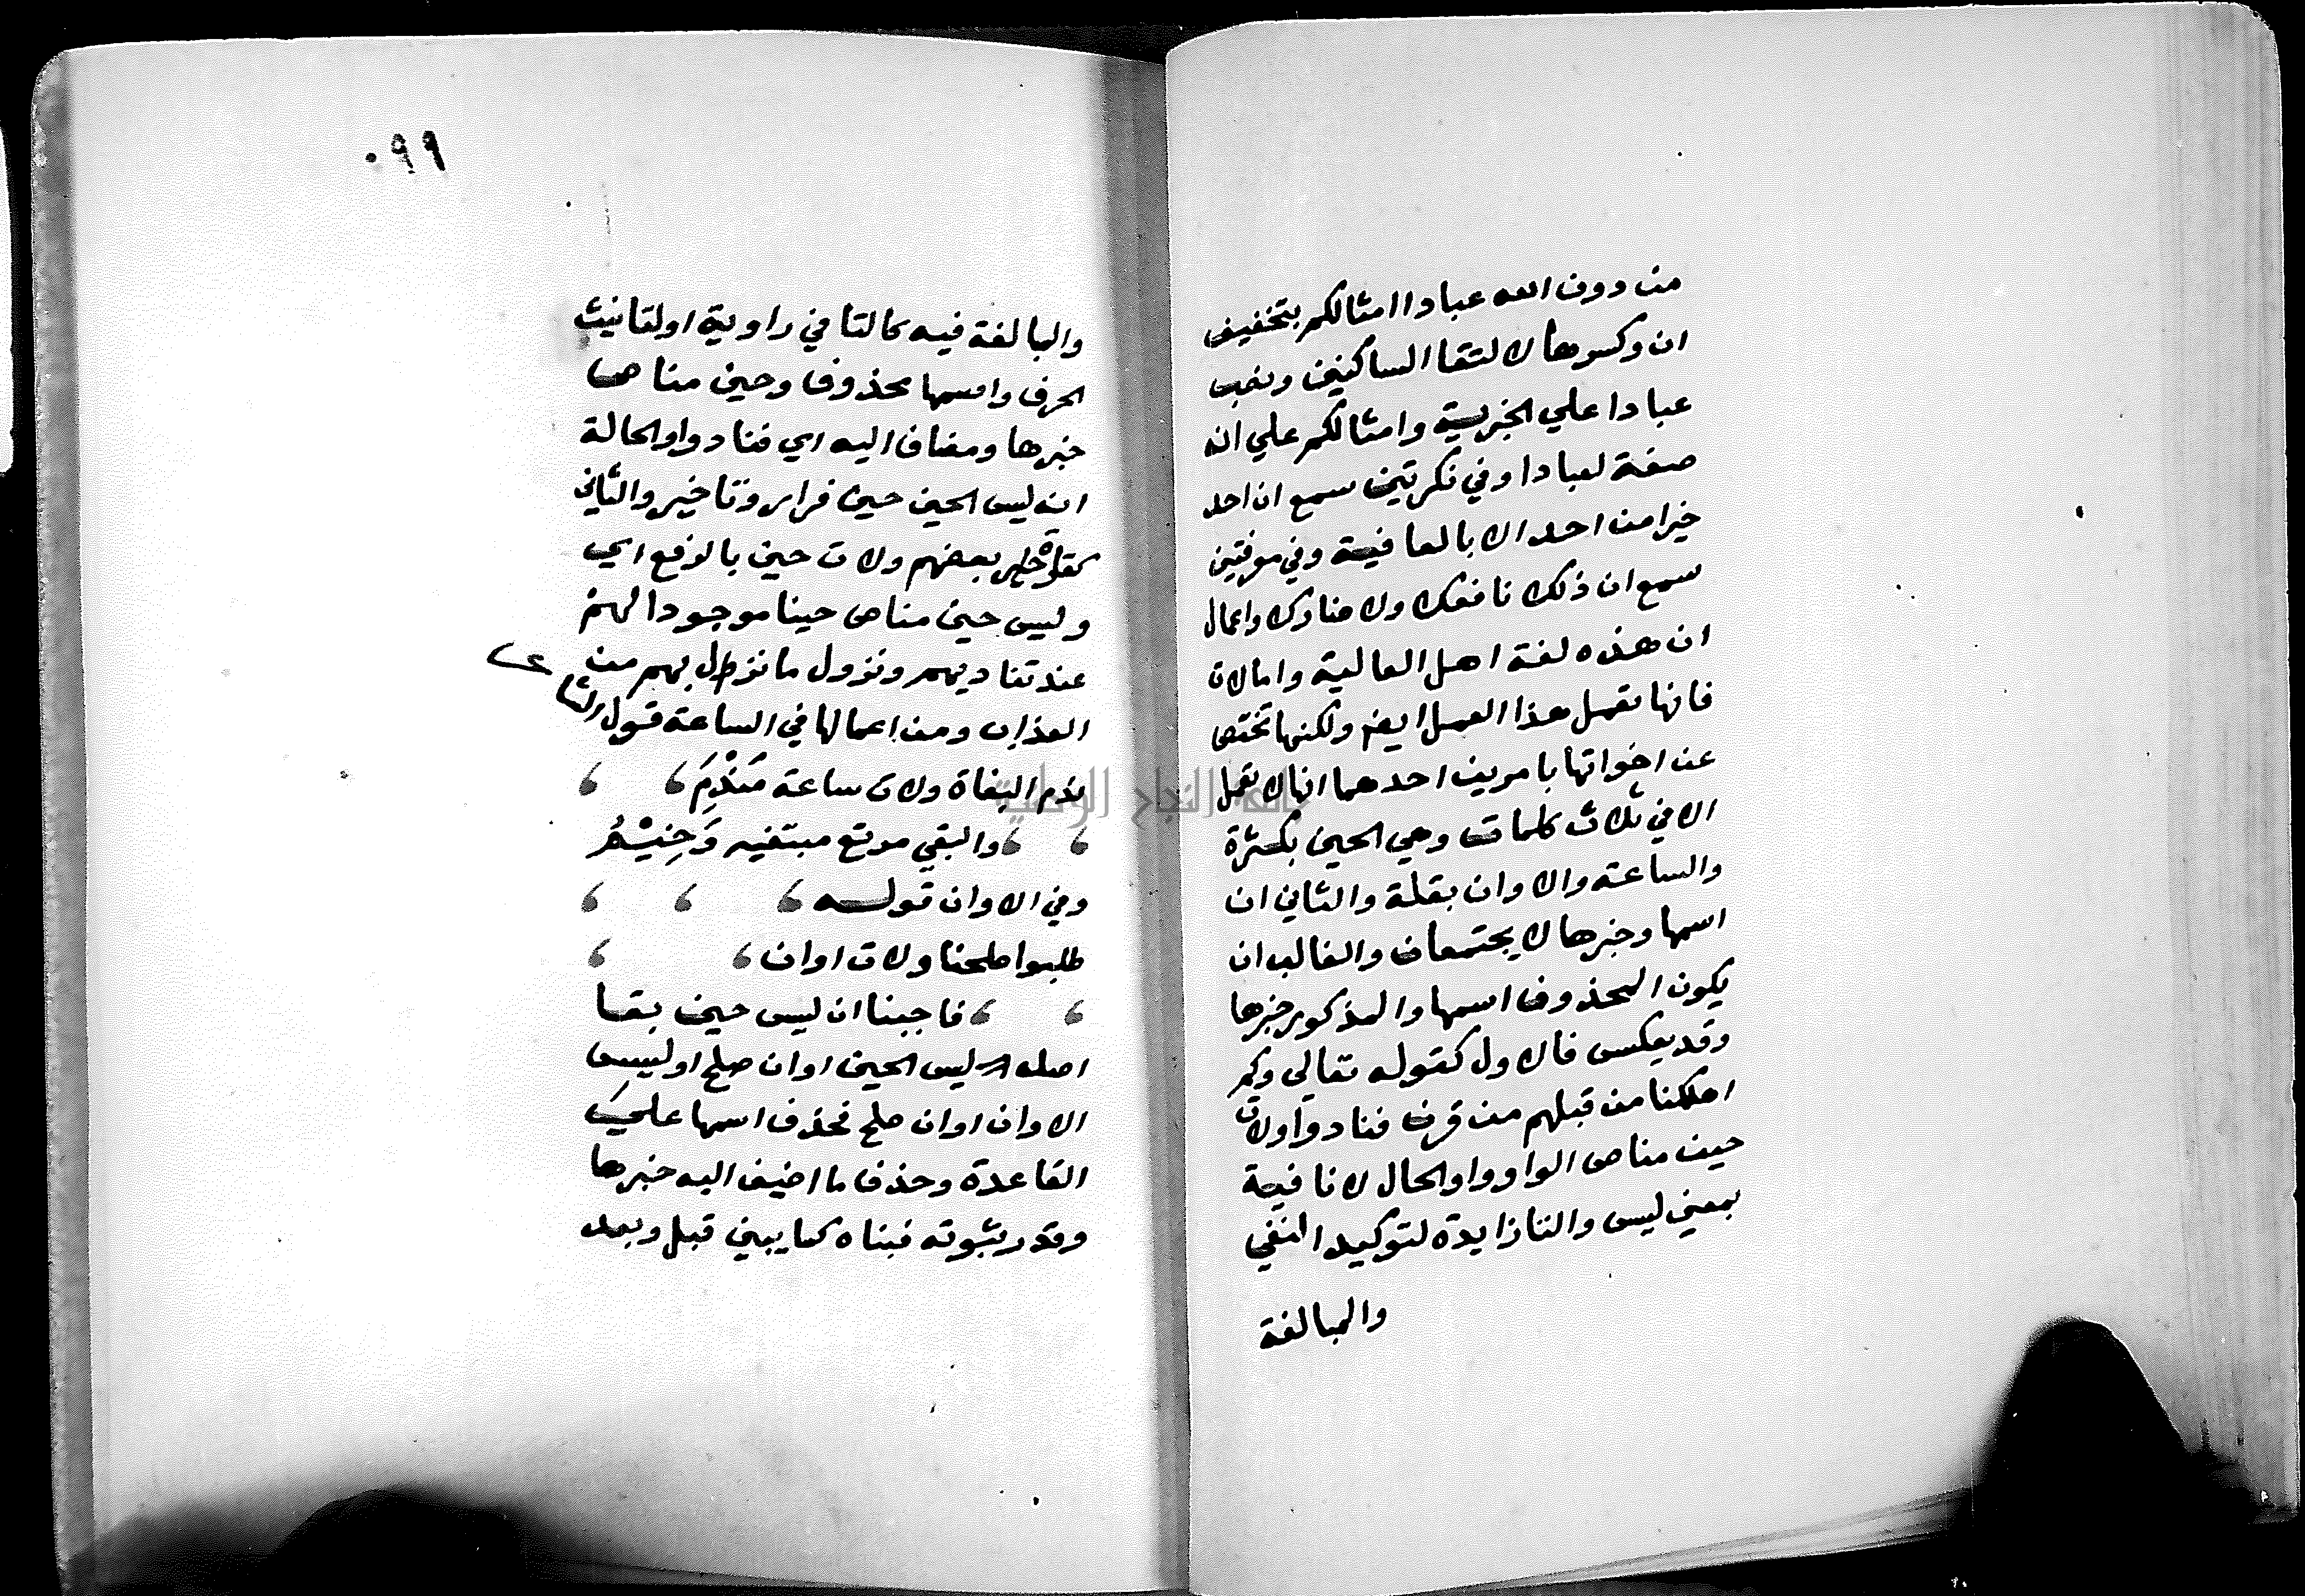 من دون الله عبادا امثالكم بتخفيف
ان وكسرها لالتقا الساكنين ونصب
عبادا علي الخبرية وامثالكم علي انه
صفة لعبادا وفي نكرتين سمع ان احد
خيرا من احد الا بالعافية وفي معرفتين
سمع ان ذلك نافعك ولا ضارك واعمال
ان هذه لغة اهل العالية واما لات
فانها تعمل هذا العمل ايضا ولكنها تختص
عن اخواتها بامرين احدهما انها لا تعمل
الا في ثلاث كلمات وهي الحين بكثرة
والساعة والاوان بقلة والثاني ان
اسمها وخبرها لا يجتمعان والغالب ان
يكون المحذوف اسمها والمذكور خبرها
وقد يعكس فالاول كقوله تعالي وكم
اهلكنا من قبلهم من قرن فنادوا ولات
حين مناص الواو واو الحال لا نافية
بمعني ليس والتا زايدة لتوكيد النفي
والمبالغة
٠٩٩
والمبالغة فيه كالتا في راوية او لتانيث
الحرف واسمها محذوف وحين مناص
خبرها ومضاف اليه اي فنادوا والحالة
انه ليس الحين حين فرار وتاخير والثاني
كقراة بعضهم ولات حين بالرفع اي
وليس حين مناص حينا موجودا لهم
عند تناديهم ونزول ما نزل بهم من
العذاب ومن اعمالها في الساعة قول الشاعر
ندم البغاة ولات ساعة مَنْدَمِ
والبغي مرتع مبتغيه وَخِيْمُ
وفي الاوان قوله
طلبوا صلحنا ولات اوان
فاجبنا ان ليس حين بقا
اصله ليس الحين اوان صلح او ليس
الاوان اوان صلح فحذف اسمها علي
القاعدة وحذف ما اضيف اليه خبرها
وقدر ثبوته فبناه كما يبني قبل وبعد
جامعة النجاح الوطنية